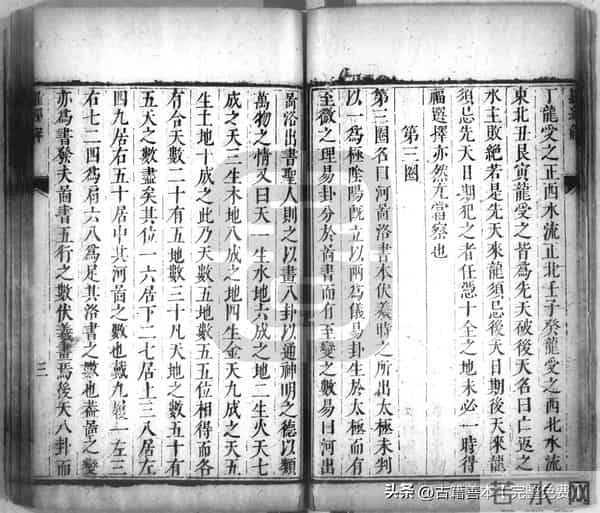 丁龍受之正西水流正北壬子癸龍受之西北水流
東北丑艮寅龍受之皆為先天破後天名曰亡返之
水主敗絕若是先天來龍須忌後天日期後天來龍
須忌先天日期犯之者任憑十全之地未必一時得
福選擇亦然尤當察也
第三圈
第三圈名曰河啚洛書本伏羲時之所出太極未判
以一為極陰陽既立以兩為儀易卦生於太極而有
至微之理易卦分於啚書而有至變之數易曰河出
啚洛出書聖人則之以畫八卦以通神明之德以類
萬物之情又曰天一生水地六成之地二生火天七
成之天三生木地八成之地四生金天九成之天五
生土地十成之此乃天數五地數五五位相得而各
有合天數二十有五地數三十凡天地之數五十有
五天之數盡矣其位一六居下二七居上三八居左
四九居右五十居中其河啚之數也戴九履一左三
右七二四為肩六八為足其洛書之數也葢啚之變
亦為書發夫啚書五行之數伏羲畫焉後天八卦而
三
头条 @古籍善本王完整免费